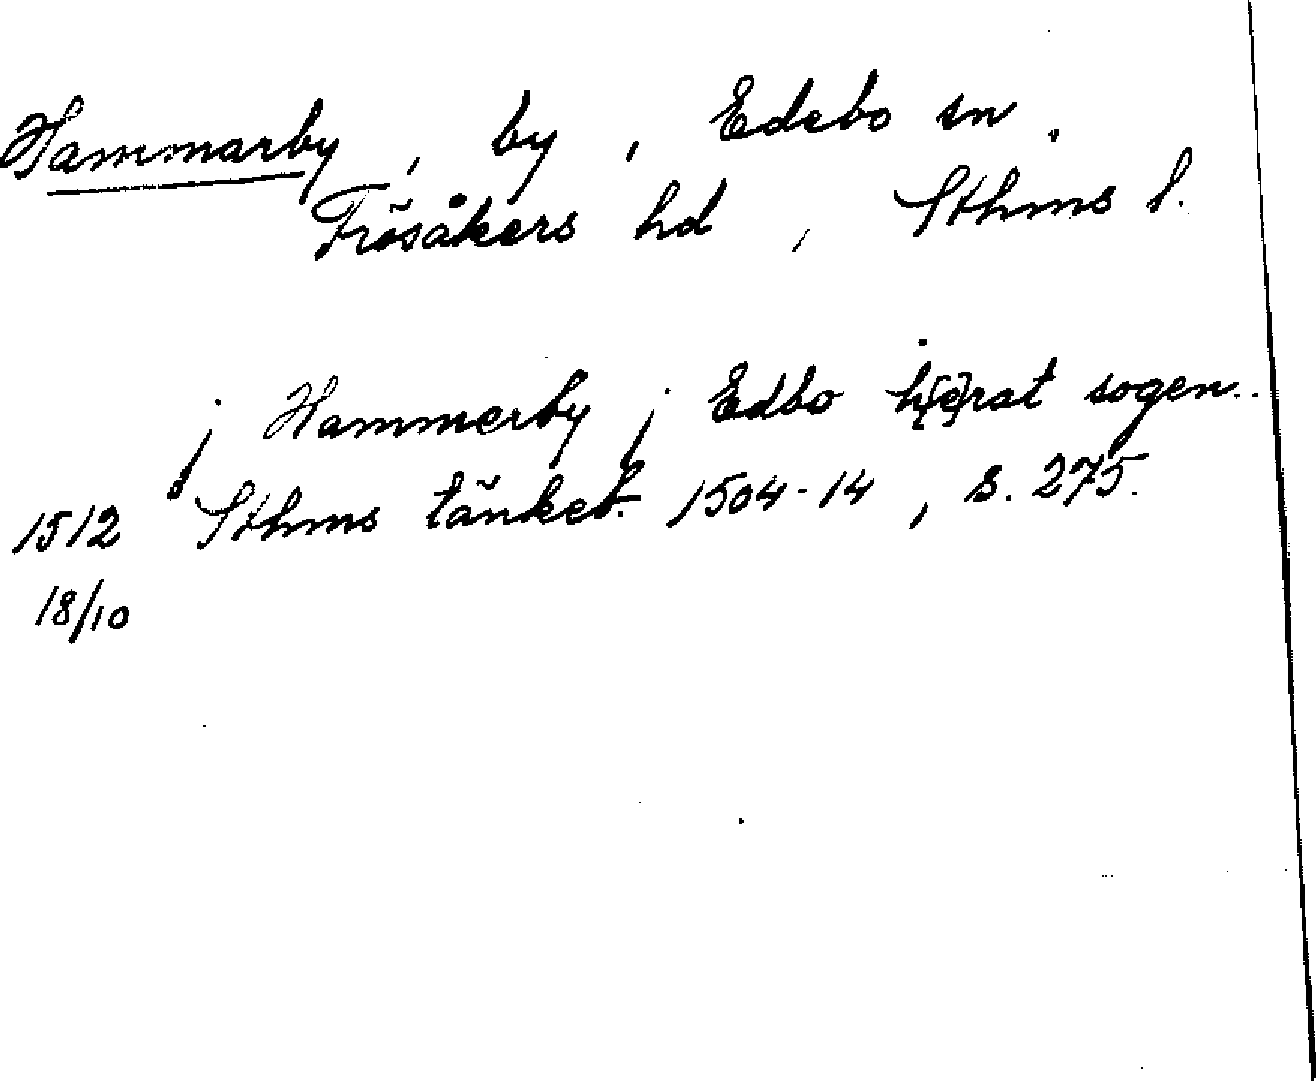 Hammarby, by, Edebo sn.
Frösåkers hd, Sthms l.
j Hammerby j Edbo h[e]rat sogen..
1512 Sthms tänkeb. 1504-14, s. 275.
18/10